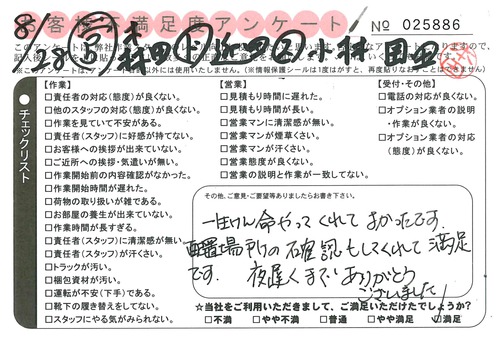 お客様不満足度アンケート
No 025886
8/28
※このアンケートは、アンケート目的以外には使用いたしません。(※情報保護シールは1度はがすと、再度貼りなおすことはできません)
チェックリスト
【作業】
□責任者の対応(態度)が良くない。
□他のスタッフの対応(態度)が良くない。
□作業を見ていて不安がある。
□責任者(スタッフ)に好感が持てない。
□お客様への挨拶が出来ていない。
□ご近所への挨拶・気遣いが無い。
□作業開始前の内容確認がなかった。
□作業開始時間が遅れた。
□荷物の取り扱いが雑である。
□お部屋の養生が出来ていない。
□作業時間が長すぎる。
□責任者(スタッフ)に清潔感が無い。
□責任者(スタッフ)が汗くさい。
□トラックが汚い。
□梱包資材が汚い。
□運転が不安(下手)である。
□靴下の履き替えをしてない。
□スタッフにやる気がみられない。
【営業】
□見積もり時間に遅れた。
□見積もり時間が長い。
□営業マンに清潔感が無い。
□営業マンが煙草くさい。
□営業マンが汗くさい。
□営業態度が良くない。
□営業の説明と作業が一致してない。
【受付・その他】
□電話の対応が良くない。
□オプション業者の説明
・作業が良くない。
□オプション業者の対応
(態度)が良くない。
その他、ご意見・ご要望等ありましたらお書き下さい。
一生けん命やってくれてよかったです。
配置場所の確認もしてくれて満足
です。夜遅くまでありがとう
ございました!
☆当社をご利用いただきまして、ご満足いただけたでしょうか?
□不満 □やや不満 □普通 □やや満足 ☑満足